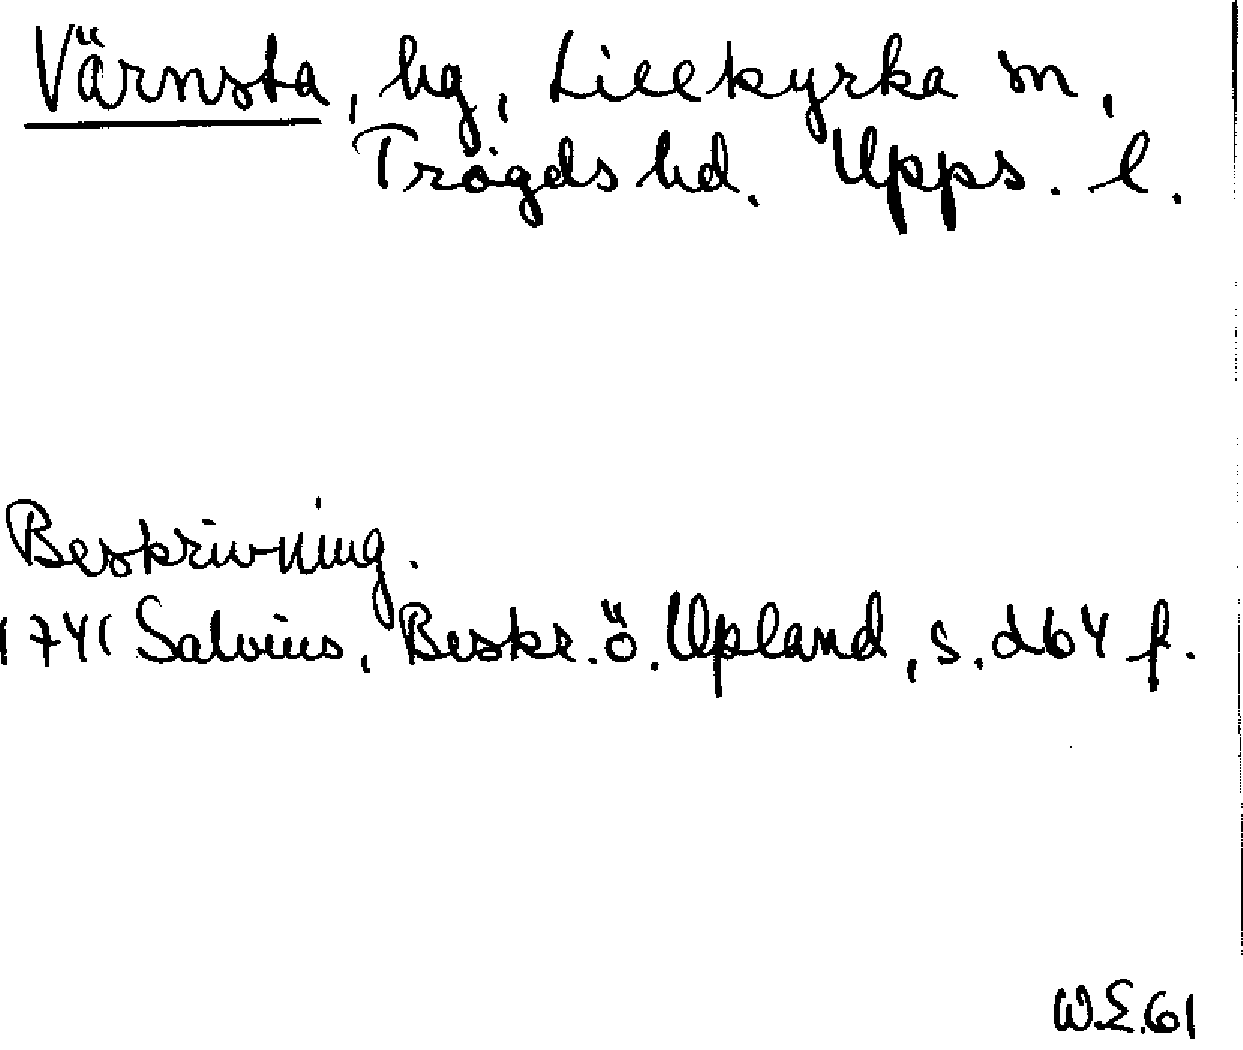 Värnsta, hg, Lillkyrka sn,
Trögds hd. Upps. l.
Beskrivning.
1741 Salvius, Beskr. ö. Upland, s. 264 f.
W.E.61